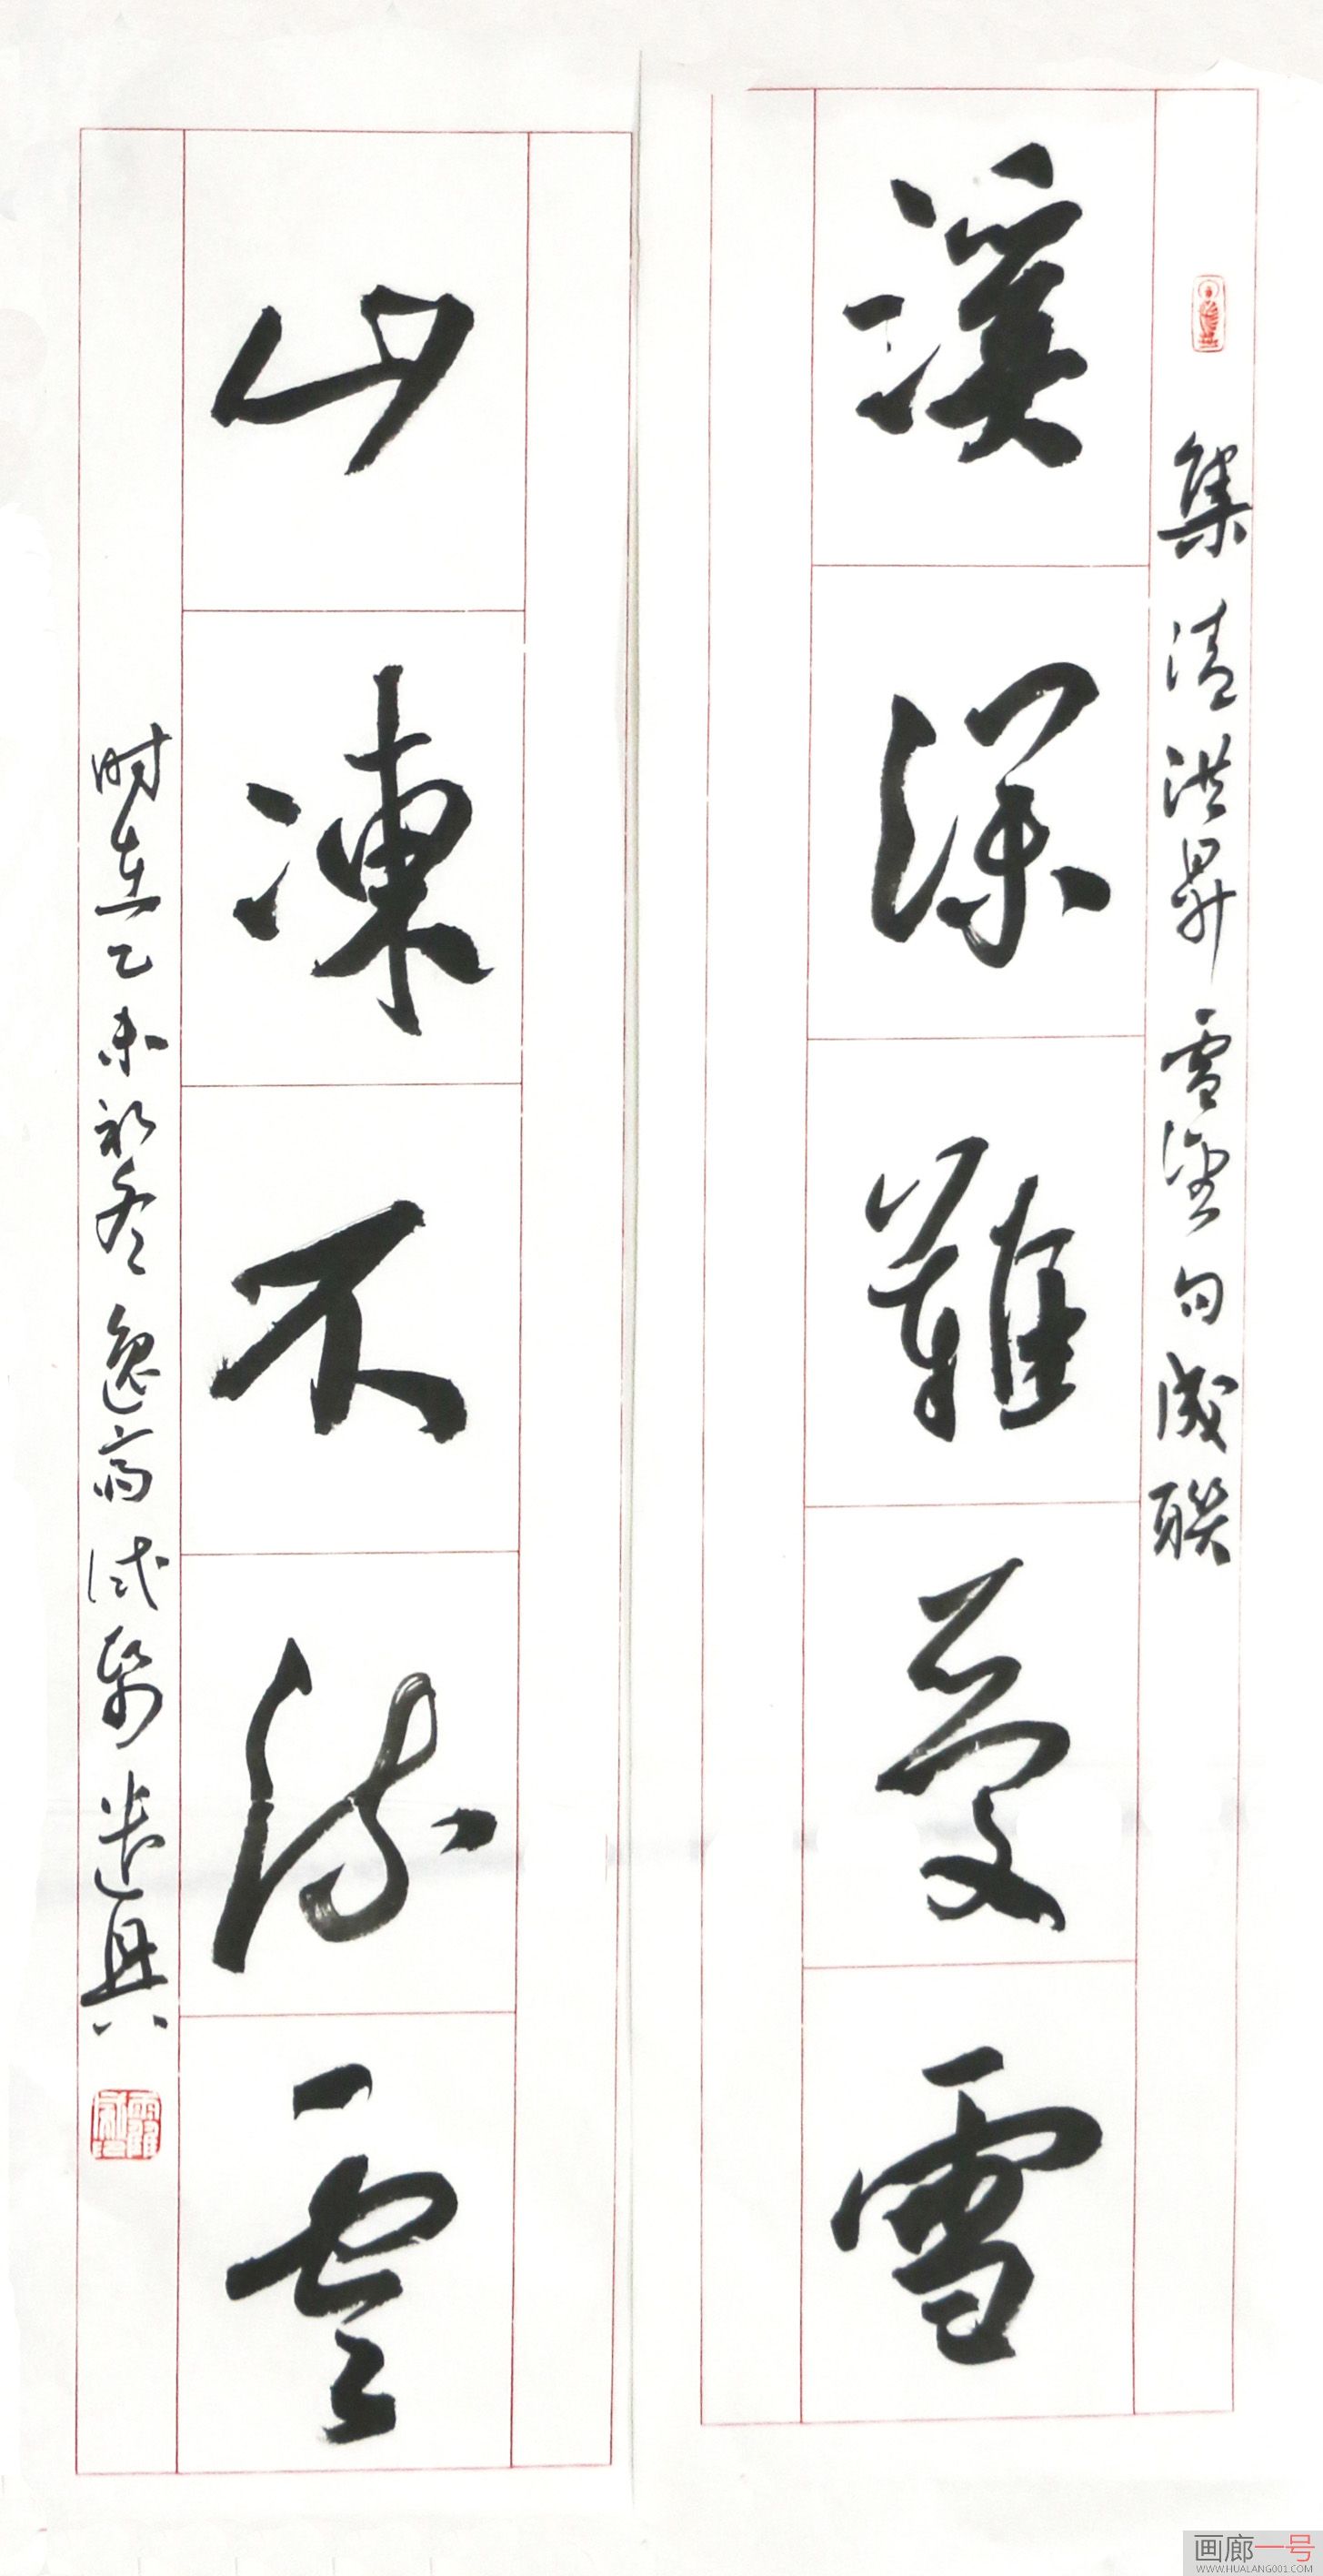 溪深難受雪
山凍不流雲
集清洪昇雪望句成聯
時在乙未初冬逸齋試筆遣興
画廊一号
WWW.HUALANG001.COM